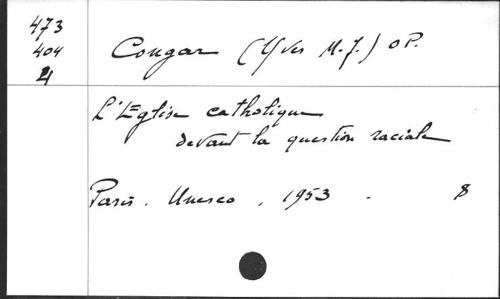 473
404
4
Congar (Yves M.J.) O P.
L'Eglise catholique
devant la question raciale
Paris. Unesco, 1953. 8